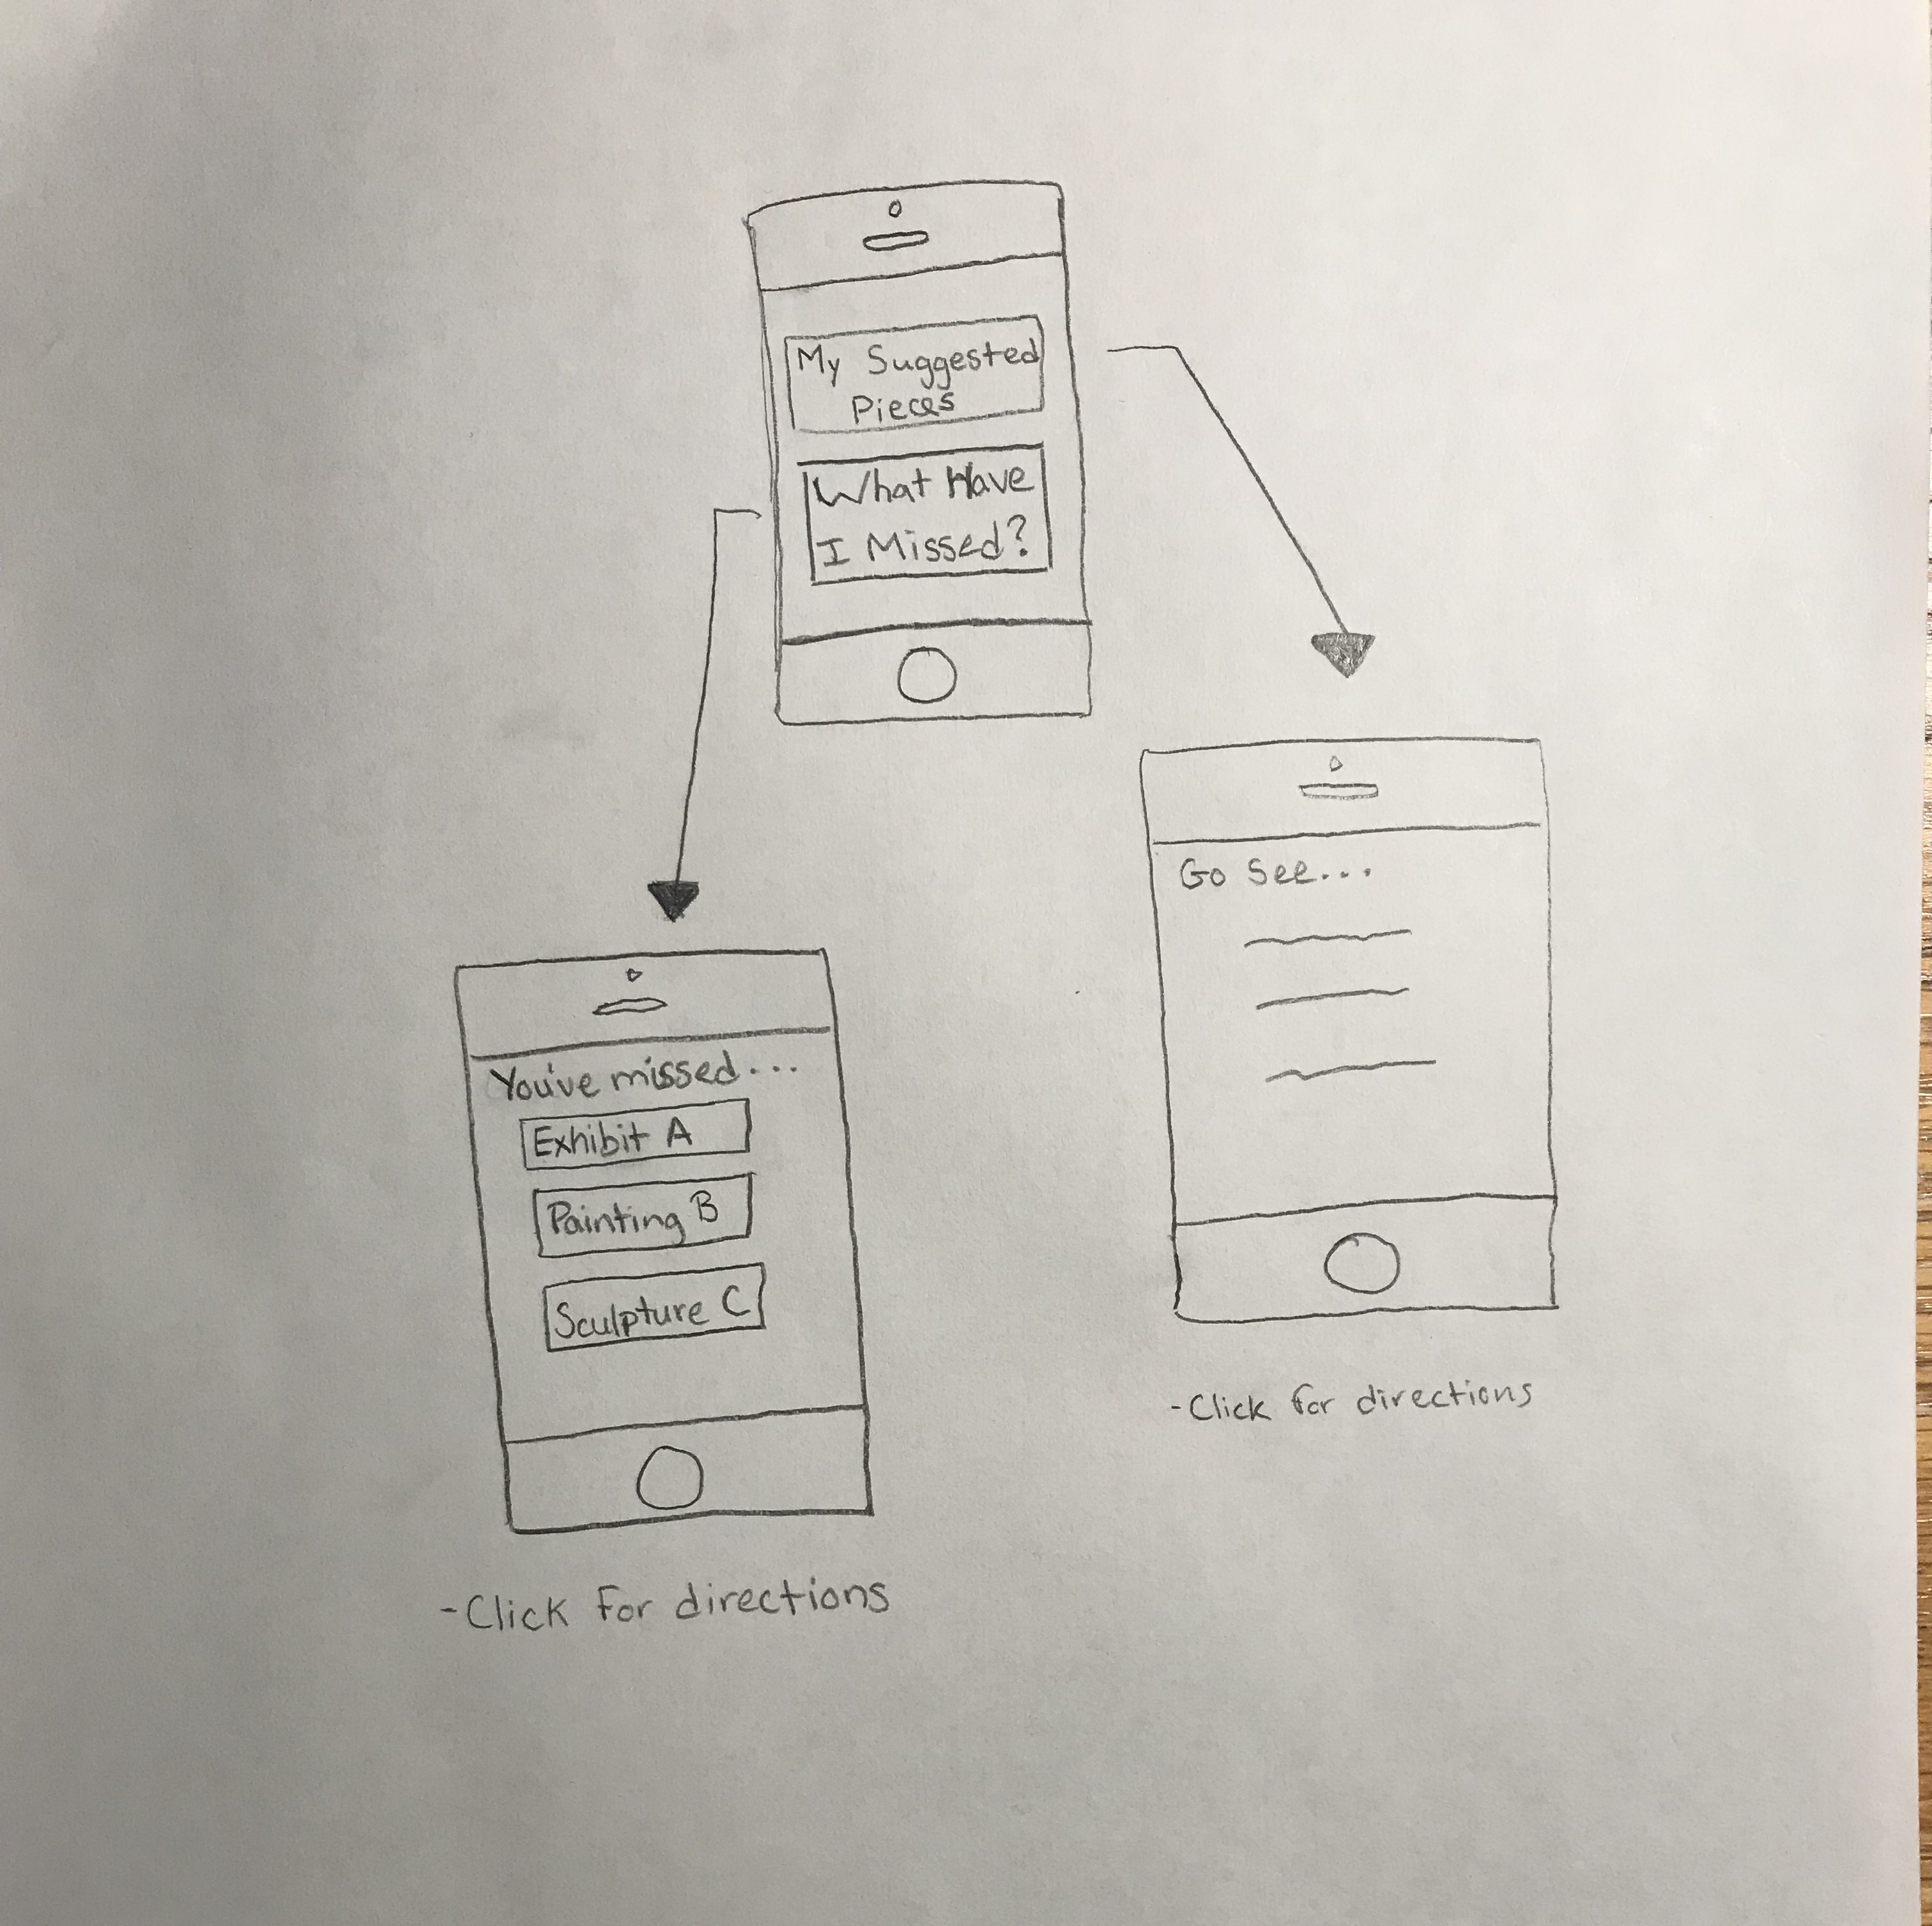 My Suggested
Pieces
What Have
I Missed?
Go See...
You've missed...
Exhibit A
Painting B
Sculpture C
-Click for directions
-Click for directions